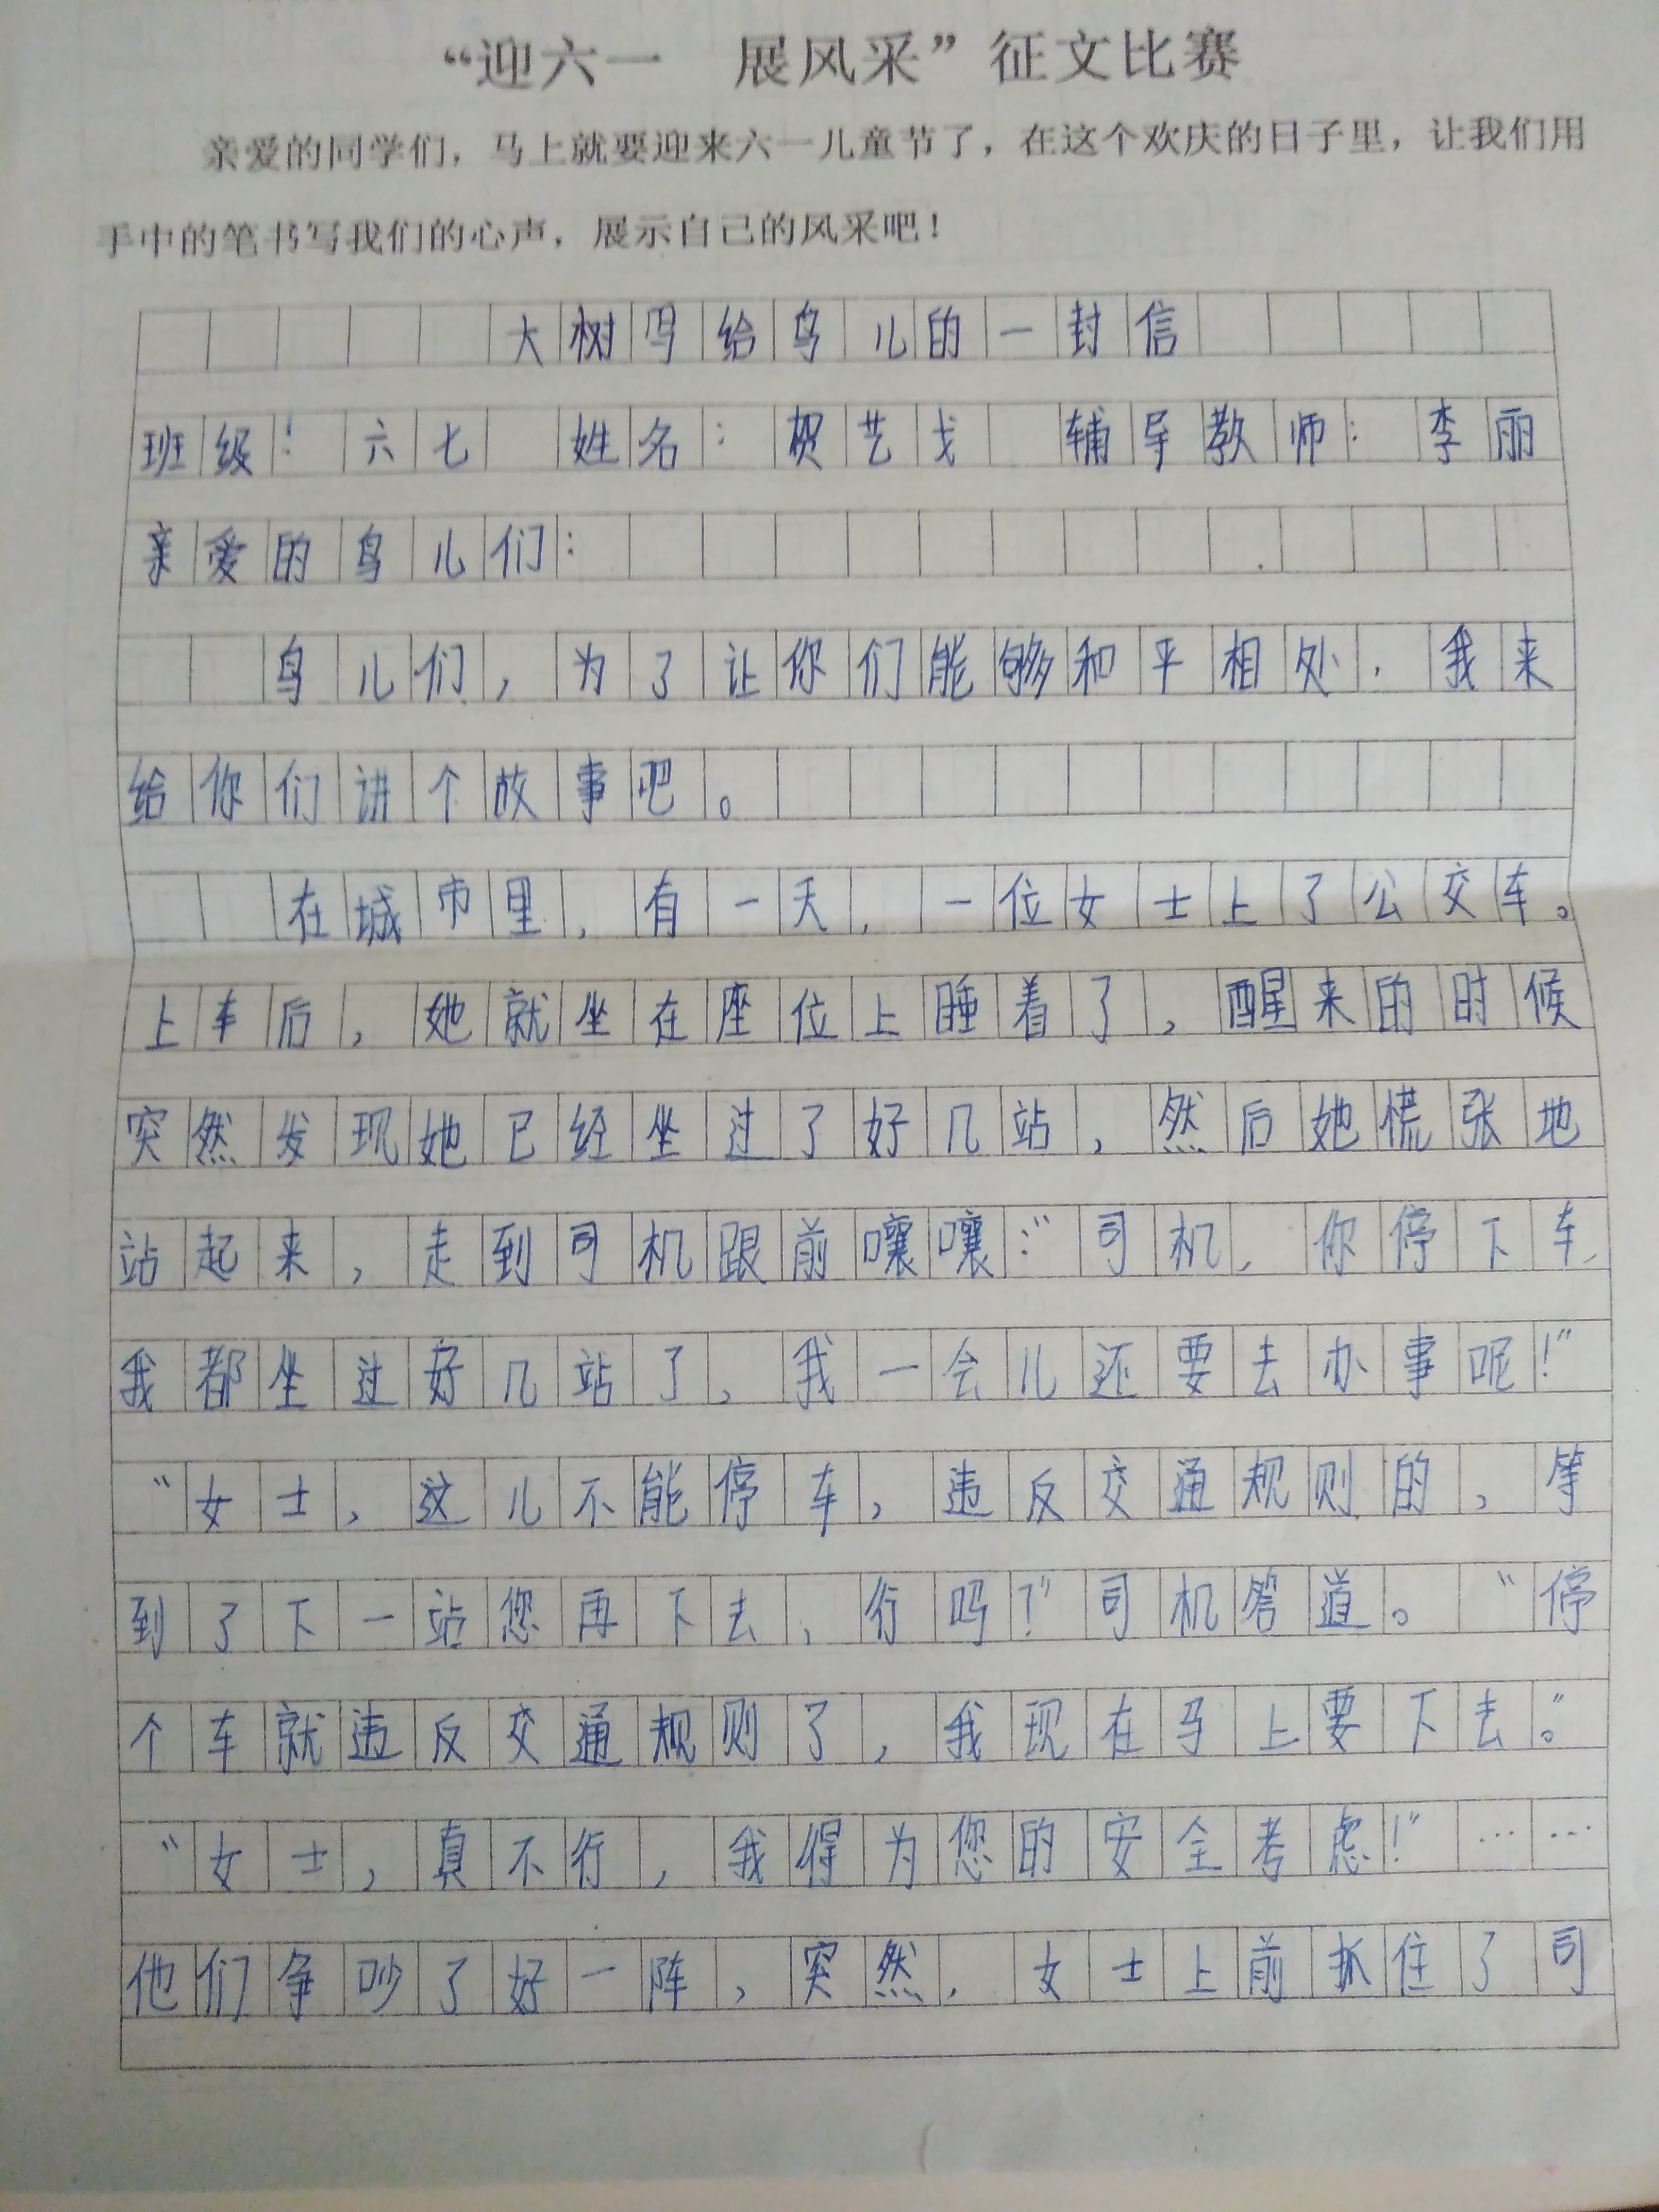 “迎六一　展风采”征文比赛
亲爱的同学们，马上就要迎来六一儿童节了，在这个欢庆的日子里，让我们用
手中的笔书写我们的心声，展示自己的风采吧！
大树写给鸟儿的一封信
班级：六七　姓名：贺艺戈　辅导教师：李丽
亲爱的鸟儿们：
鸟儿们，为了让你们能够和平相处，我来
给你们讲个故事吧。
在城市里，有一天，一位女士上了公交车。
上车后，她就坐在座位上睡着了，醒来的时候
突然发现她已经坐过了好几站，然后她慌张地
站起来，走到司机跟前嚷嚷：“司机，你停下车，
我都坐过好几站了，我一会儿还要去办事呢！”
“女士，这儿不能停车，违反交通规则的，等
到了下一站您再下去，行吗？”司机答道。“停
个车就违反交通规则了，我现在马上要下去。”
“女士，真不行，我得为您的安全考虑！”……
他们争吵了好一阵，突然，女士上前抓住了司